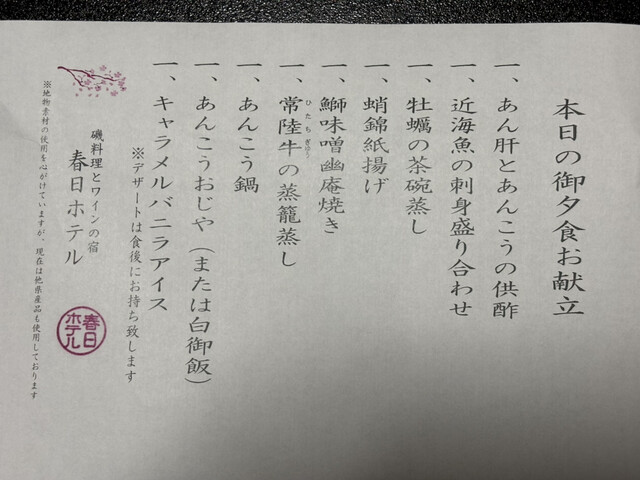 本日の御夕食お献立
一、あん肝とあんこうの供酢
一、近海魚の刺身盛り合わせ
一、牡蠣の茶碗蒸し
一、蛸錦紙揚げ
一、鰤味噌幽庵焼き
一、常陸牛の蒸籠蒸し
ひたちぎゅう
一、あんこう鍋
一、あんこうおじや（または白御飯）
一、キャラメルバニラアイス
※デザートは食後にお持ち致します
磯料理とワインの宿
春日ホテル
春日
ホテル
※地物素材の使用を心がけていますが、現在は他県産品も使用しております